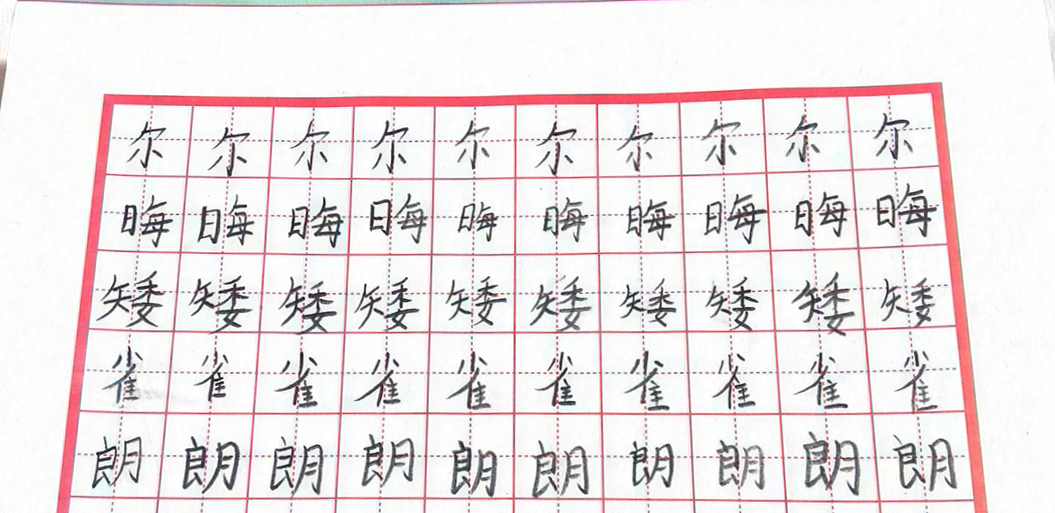 尔尔尔尔尔尔尔尔尔尔
晦晦晦晦晦晦晦晦晦晦
矮矮矮矮矮矮矮矮矮矮
雀雀雀雀雀雀雀雀雀雀
朗朗朗朗朗朗朗朗朗朗